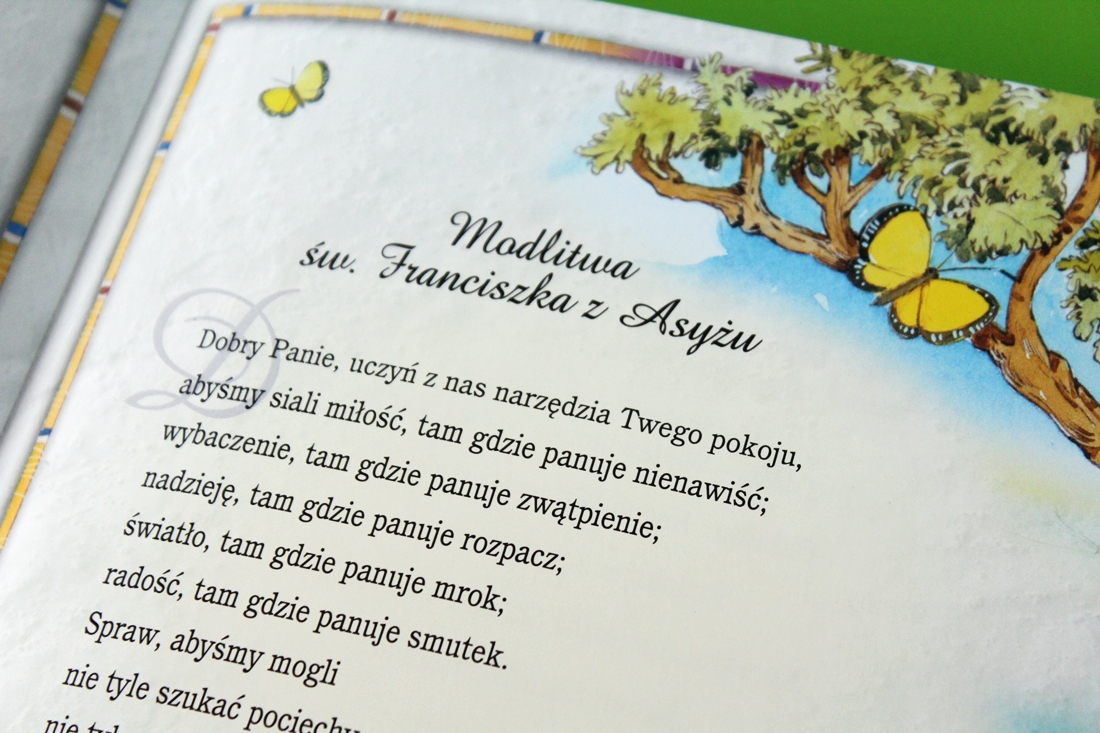 Modlitwa
św. Franciszka z Asyżu
Dobry Panie, uczyń z nas narzędzia Twego pokoju,
abyśmy siali miłość, tam gdzie panuje nienawiść;
wybaczenie, tam gdzie panuje zwątpienie;
nadzieję, tam gdzie panuje rozpacz;
światło, tam gdzie panuje mrok;
radość, tam gdzie panuje smutek.
Spraw, abyśmy mogli
nie tyle szukać pociechy
nie